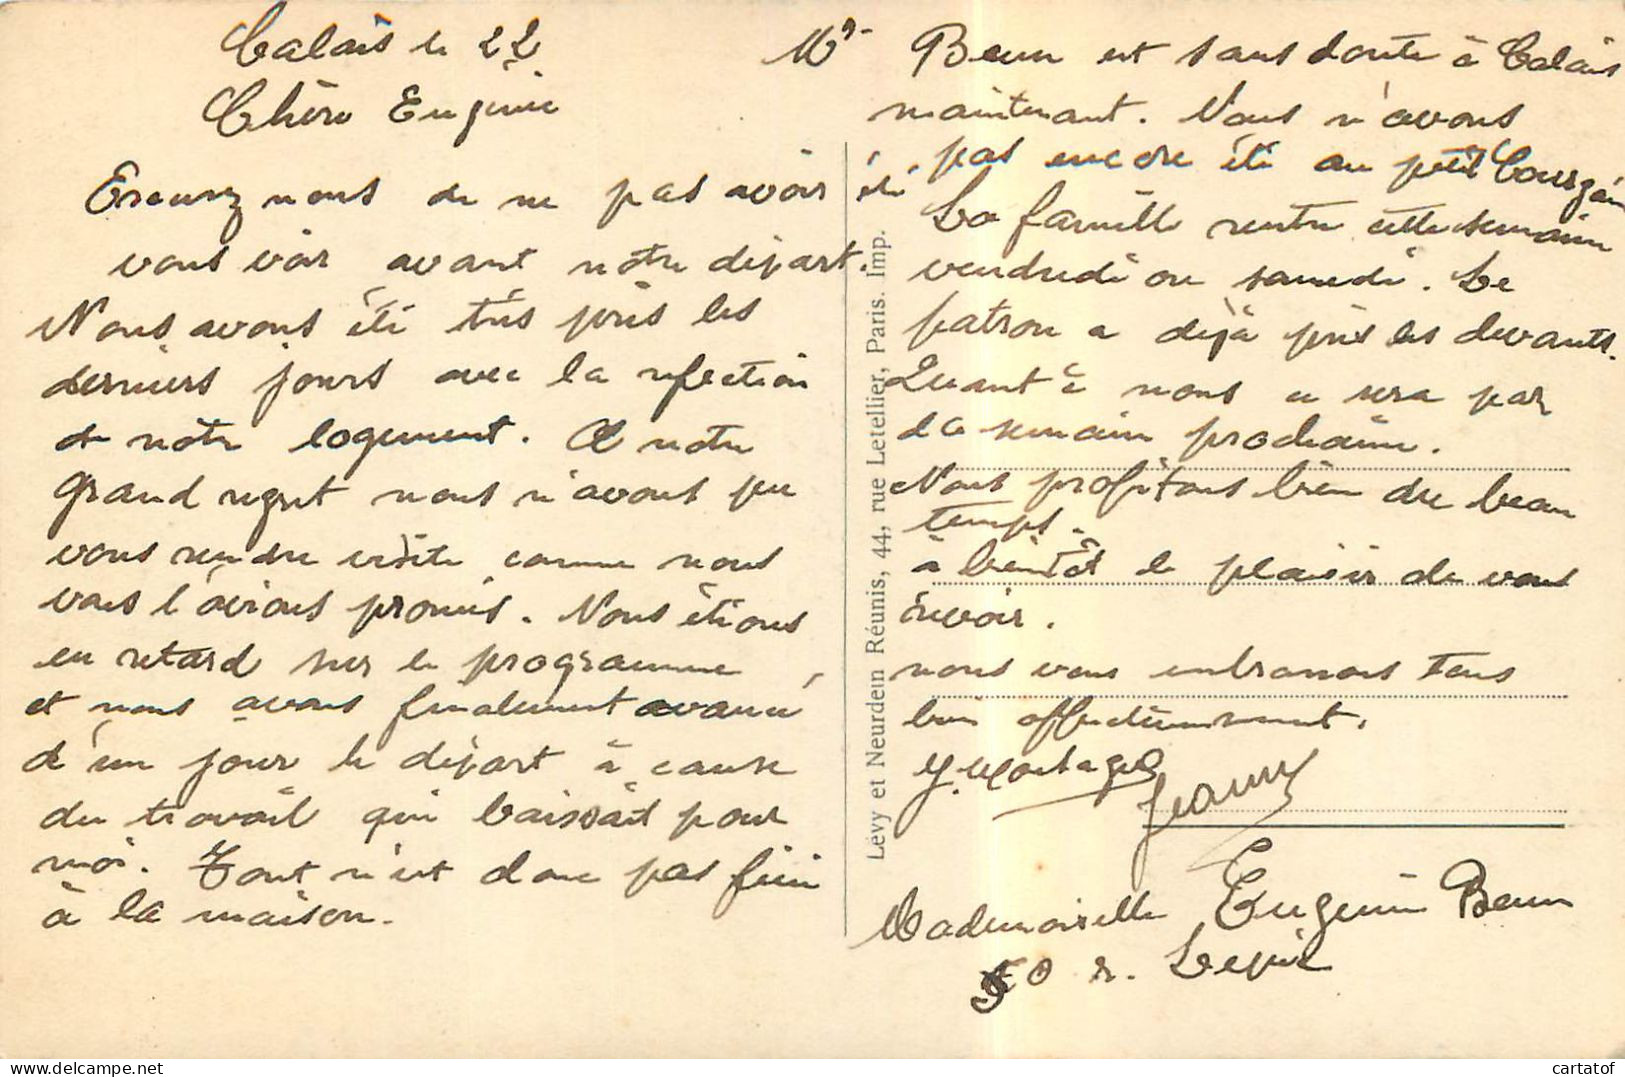 Calais le 22
Chère Eugénie
Excusez nous de ne pas avoir été
vous voir avant notre départ.
Nous avons été très pris les
derniers jours avec la réfection
de notre logement. A notre
grand regret nous n'avons pu
vous rendre visite comme nous
vous l'avions promis. Nous étions
en retard sur le programme,
et nous avons finalement avancé
d'un jour le départ à cause
du travail qui baissait pour
moi. Tout n'est donc pas fini
à la maison.
Mr Beun est sans doute à Calais
maintenant. Nous n'avons
pas encore été au petit
La famille rentre cette semaine
vendredi ou samedi. Le
patron a déjà pris les devants.
Quant à nous ce sera par
la semaine prochaine.
Nous profitons bien du beau
temps.
à bientôt le plaisir de vous
revoir.
nous vous embrassons tous
bien affectueusement.
Jeanne
Mademoiselle Eugénie Beun
50 r. Lepic
Lévy et Neurdein Réunis, 44, rue Letellier, Paris. Imp.
cartatof